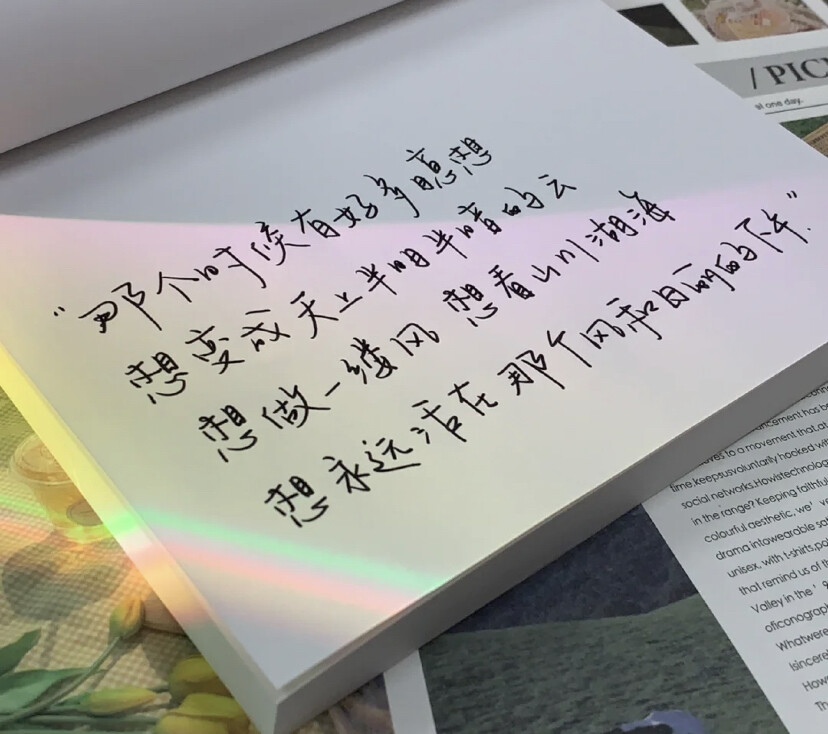 “那个时候有好多臆想
想变成天上半明半暗的云
想做一缕风 想看山川湖海
想永远活在那个风和日丽的下午”.
/ PIC
one day.
to a movement that.at
time.keepsusvoluntarily hooked
social networks.Howistechnolog
in the range? Keeping faithful
colourful aesthetic, we'
drama intowearable
unisex, with t-shirts,
that remind us of
Valley in the '
oficonograph
Whatwere
Isincerel
How
Th